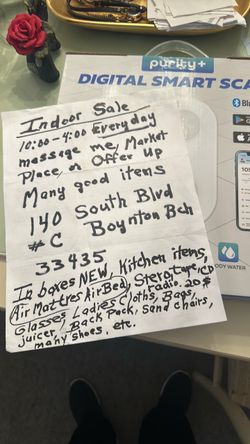 purity+
DIGITAL SMART SCA
Indoor Sale
10:00-4:00 Everyday
message me, Market
Place, or Offer Up
Many good items
140 South Blvd
#C Boynton Bch
33435
In boxes NEW, Kitchen items,
Air Mattres Air Bed, Stero tape, CD
radio. 20$
Glasses Ladies Cloths, Bags,
juicer, Back Pack, Sand chairs,
many shoes, etc.
ODY WATER